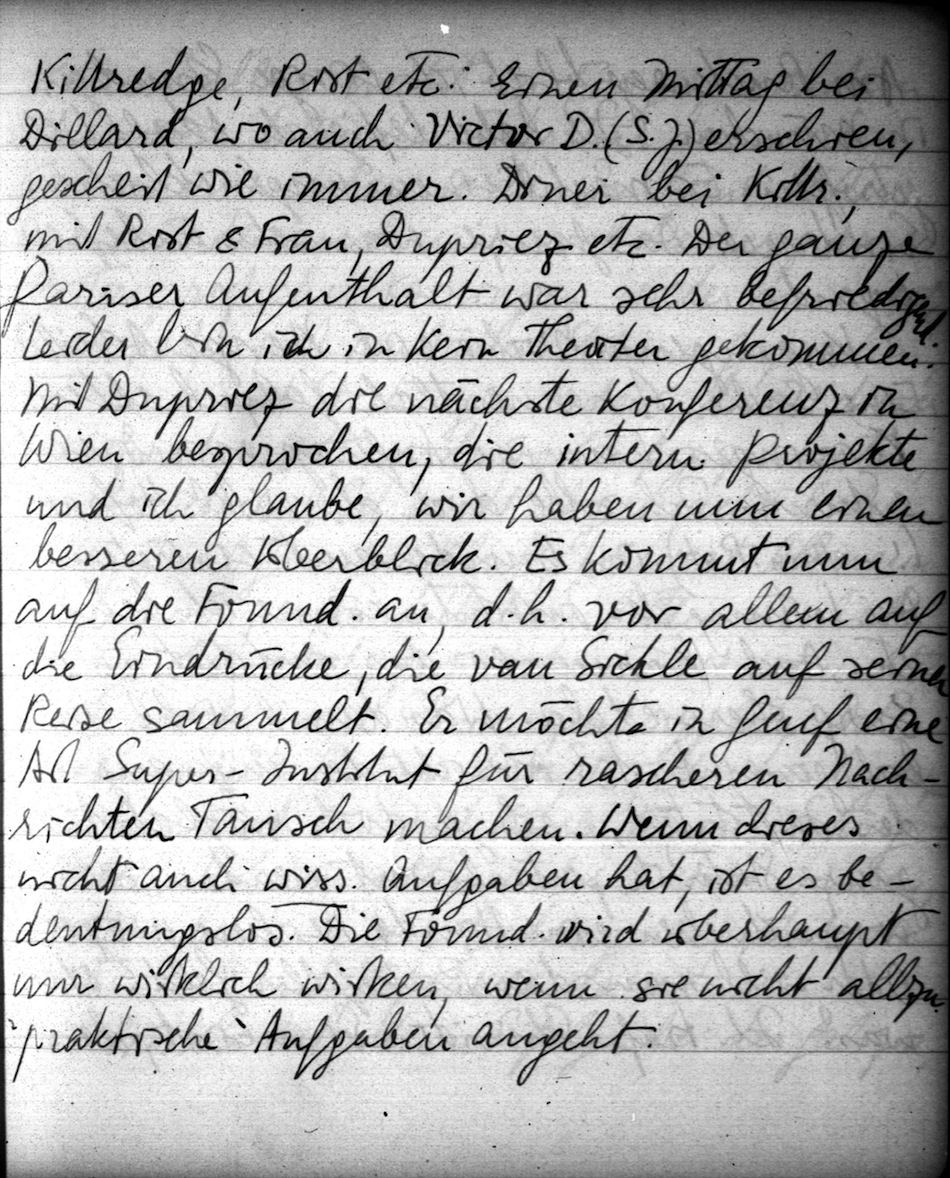 Kittredge, Rist etc. Einen Mittag bei
Dillard, wo auch Victor D. (S.J.) erschien,
gescheit wie immer. Diner bei Kittr.,
mit Rist & Frau, Dupriez etc. Der ganze
Pariser Aufenthalt war sehr befriedigend.
Leider bin ich in kein Theater gekommen.
Mit Dupriez die nächste Konferenz in
Wien besprochen, die intern. Projekte
und ich glaube, wir haben nun einen
besseren Überblick. Es kommt nun
auf die Found. an, d.h. vor allem auf
die Eindrücke, die van Sickle auf seiner
Reise sammelt. Er möchte in Genf eine
Art Super-Institut für rascheren Nach-
richten Tausch machen. Wenn dieses
nicht auch wiss. Aufgaben hat, ist es be-
deutungslos. Die Found. wird überhaupt
nur wirklich wirken, wenn sie nicht allzu
"praktische" Aufgaben angeht.